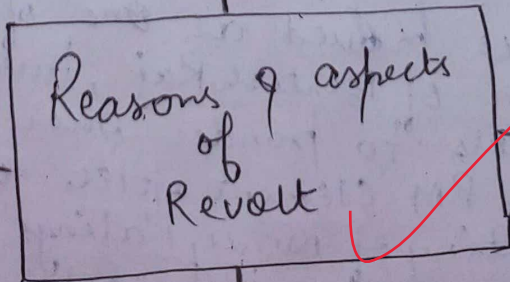 Reasons & aspects
of
Revolt